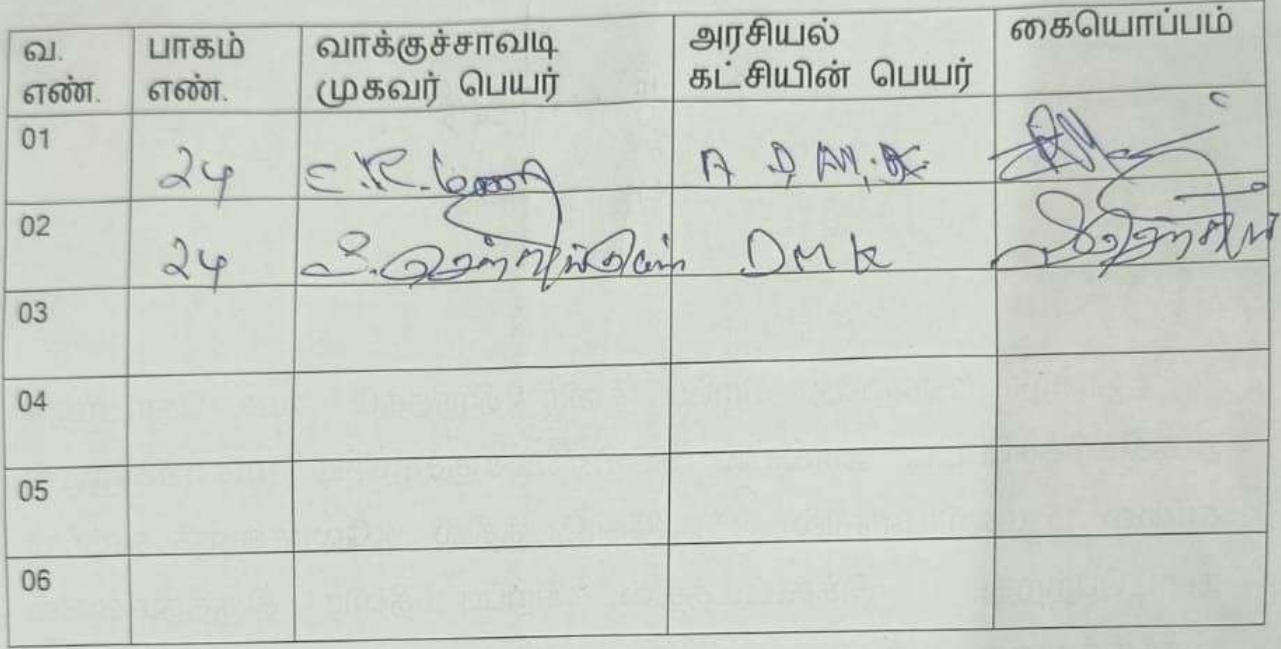 வ. எண். பாகம் எண். வாக்குச்சாவடி முகவர் பெயர் அரசியல் கட்சியின் பெயர் கையொப்பம்
01 24 A.D.M.K
02 24 DMK
03
04
05
06